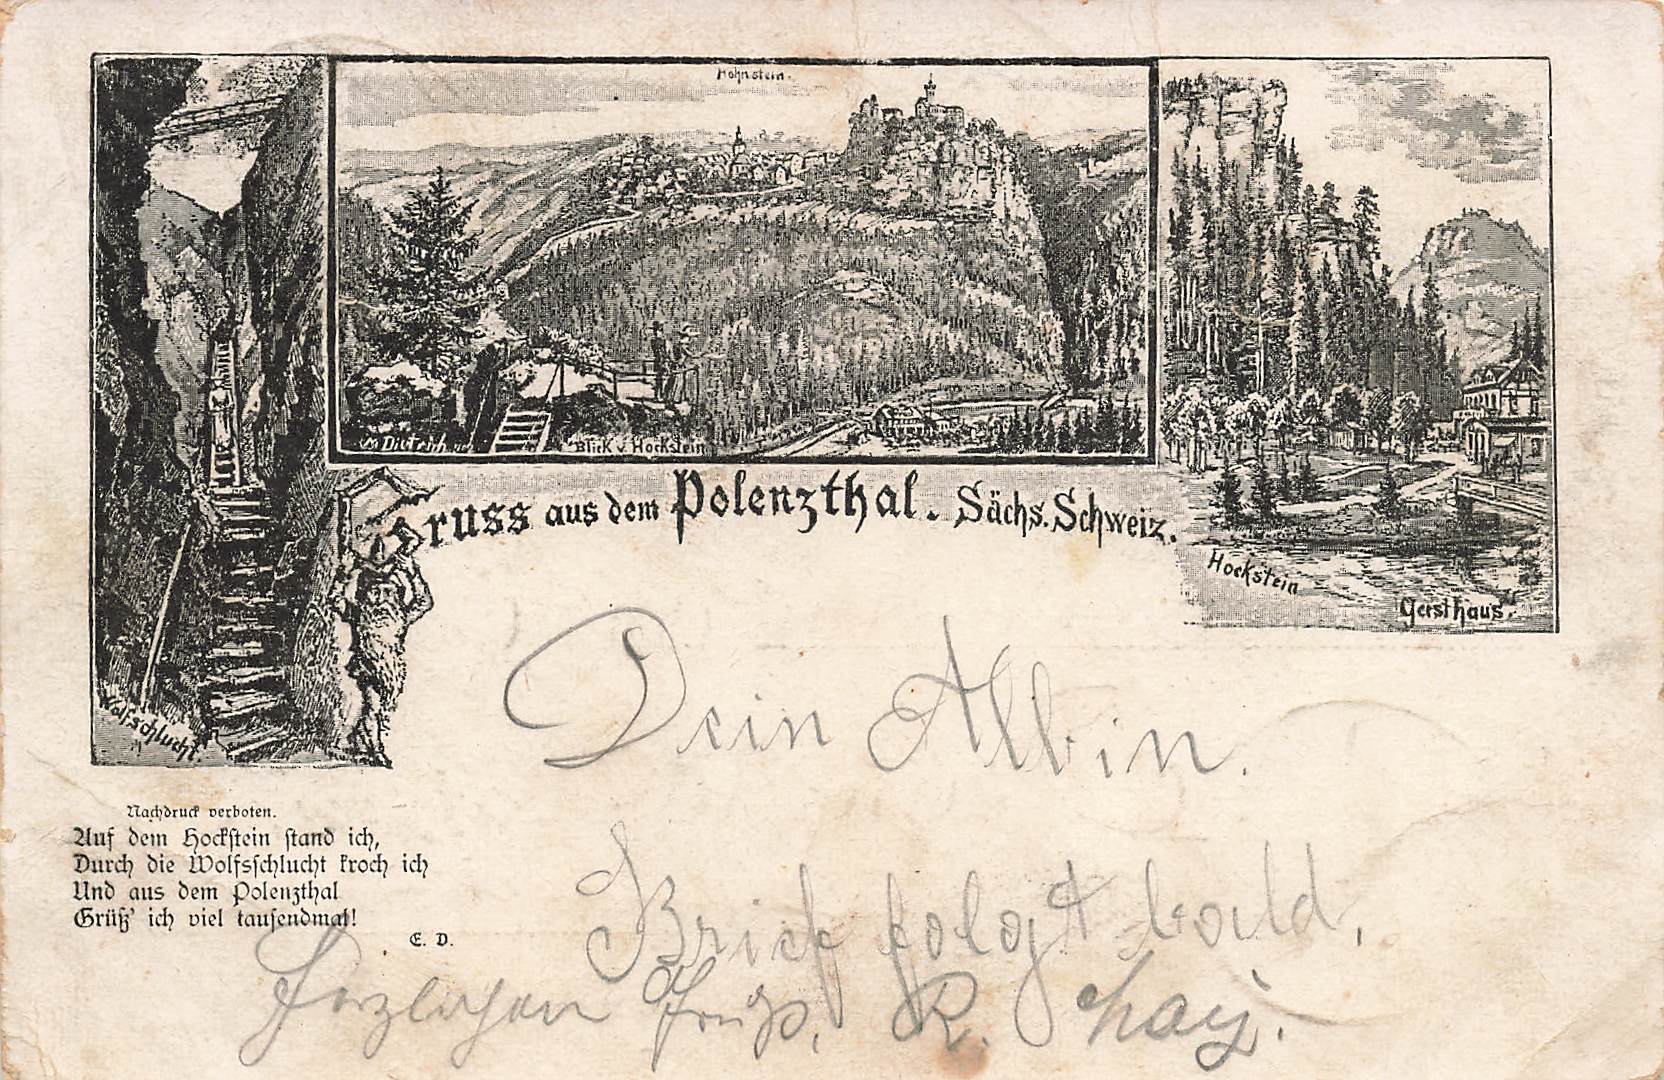 Hohnstein.
M. Dietrich
Blick v. Hockstein
Gruss aus dem Polenzthal. Sächs. Schweiz.
Hockstein
Gasthaus
Wolfschlucht.
Dein Albin.
Nachdruck verboten.
Auf dem Hockstein stand ich,
Durch die Wolfsschlucht kroch ich
Und aus dem Polenzthal
Grüß' ich viel tausendmal!
E. D.
Brief folgt bald,
Herzlichen Gruß, R.